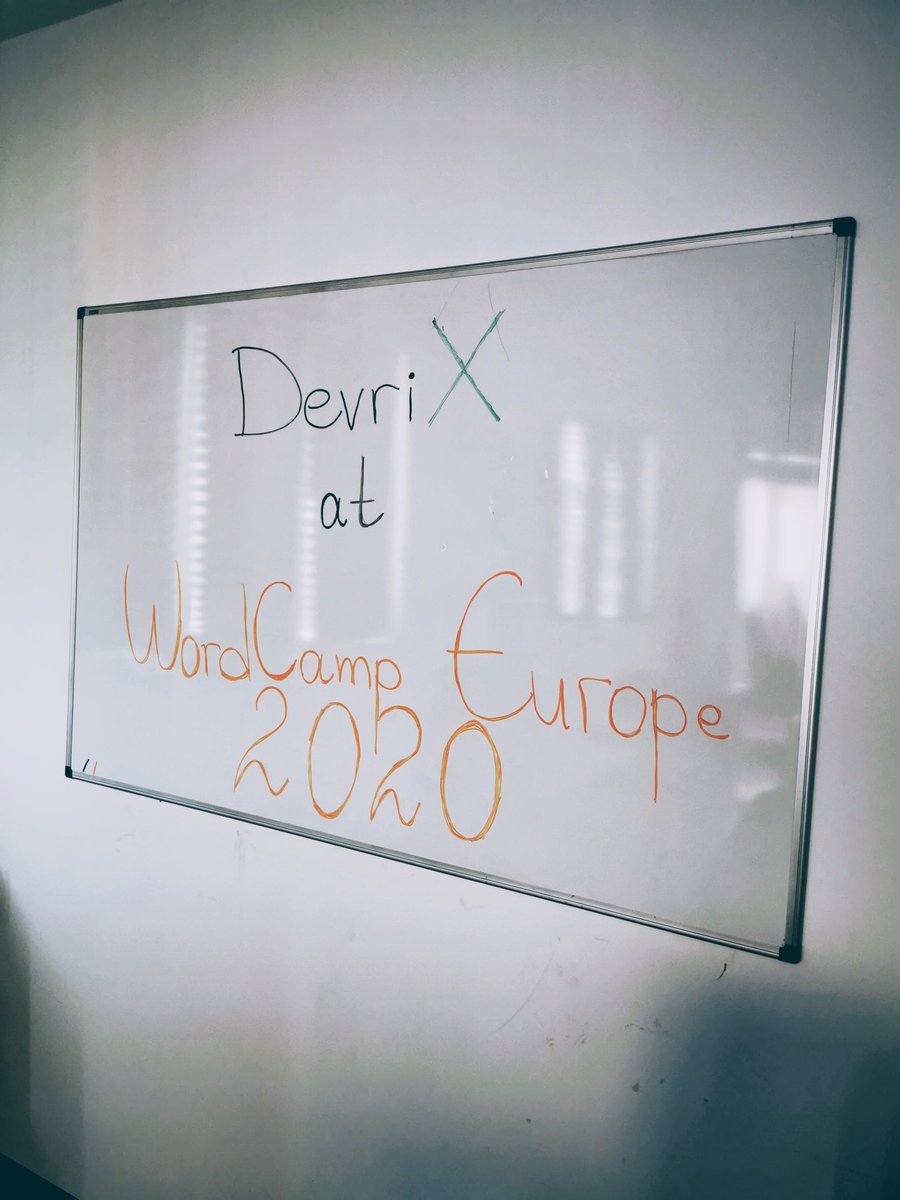 DevriX
at
WordCamp Europe
2020